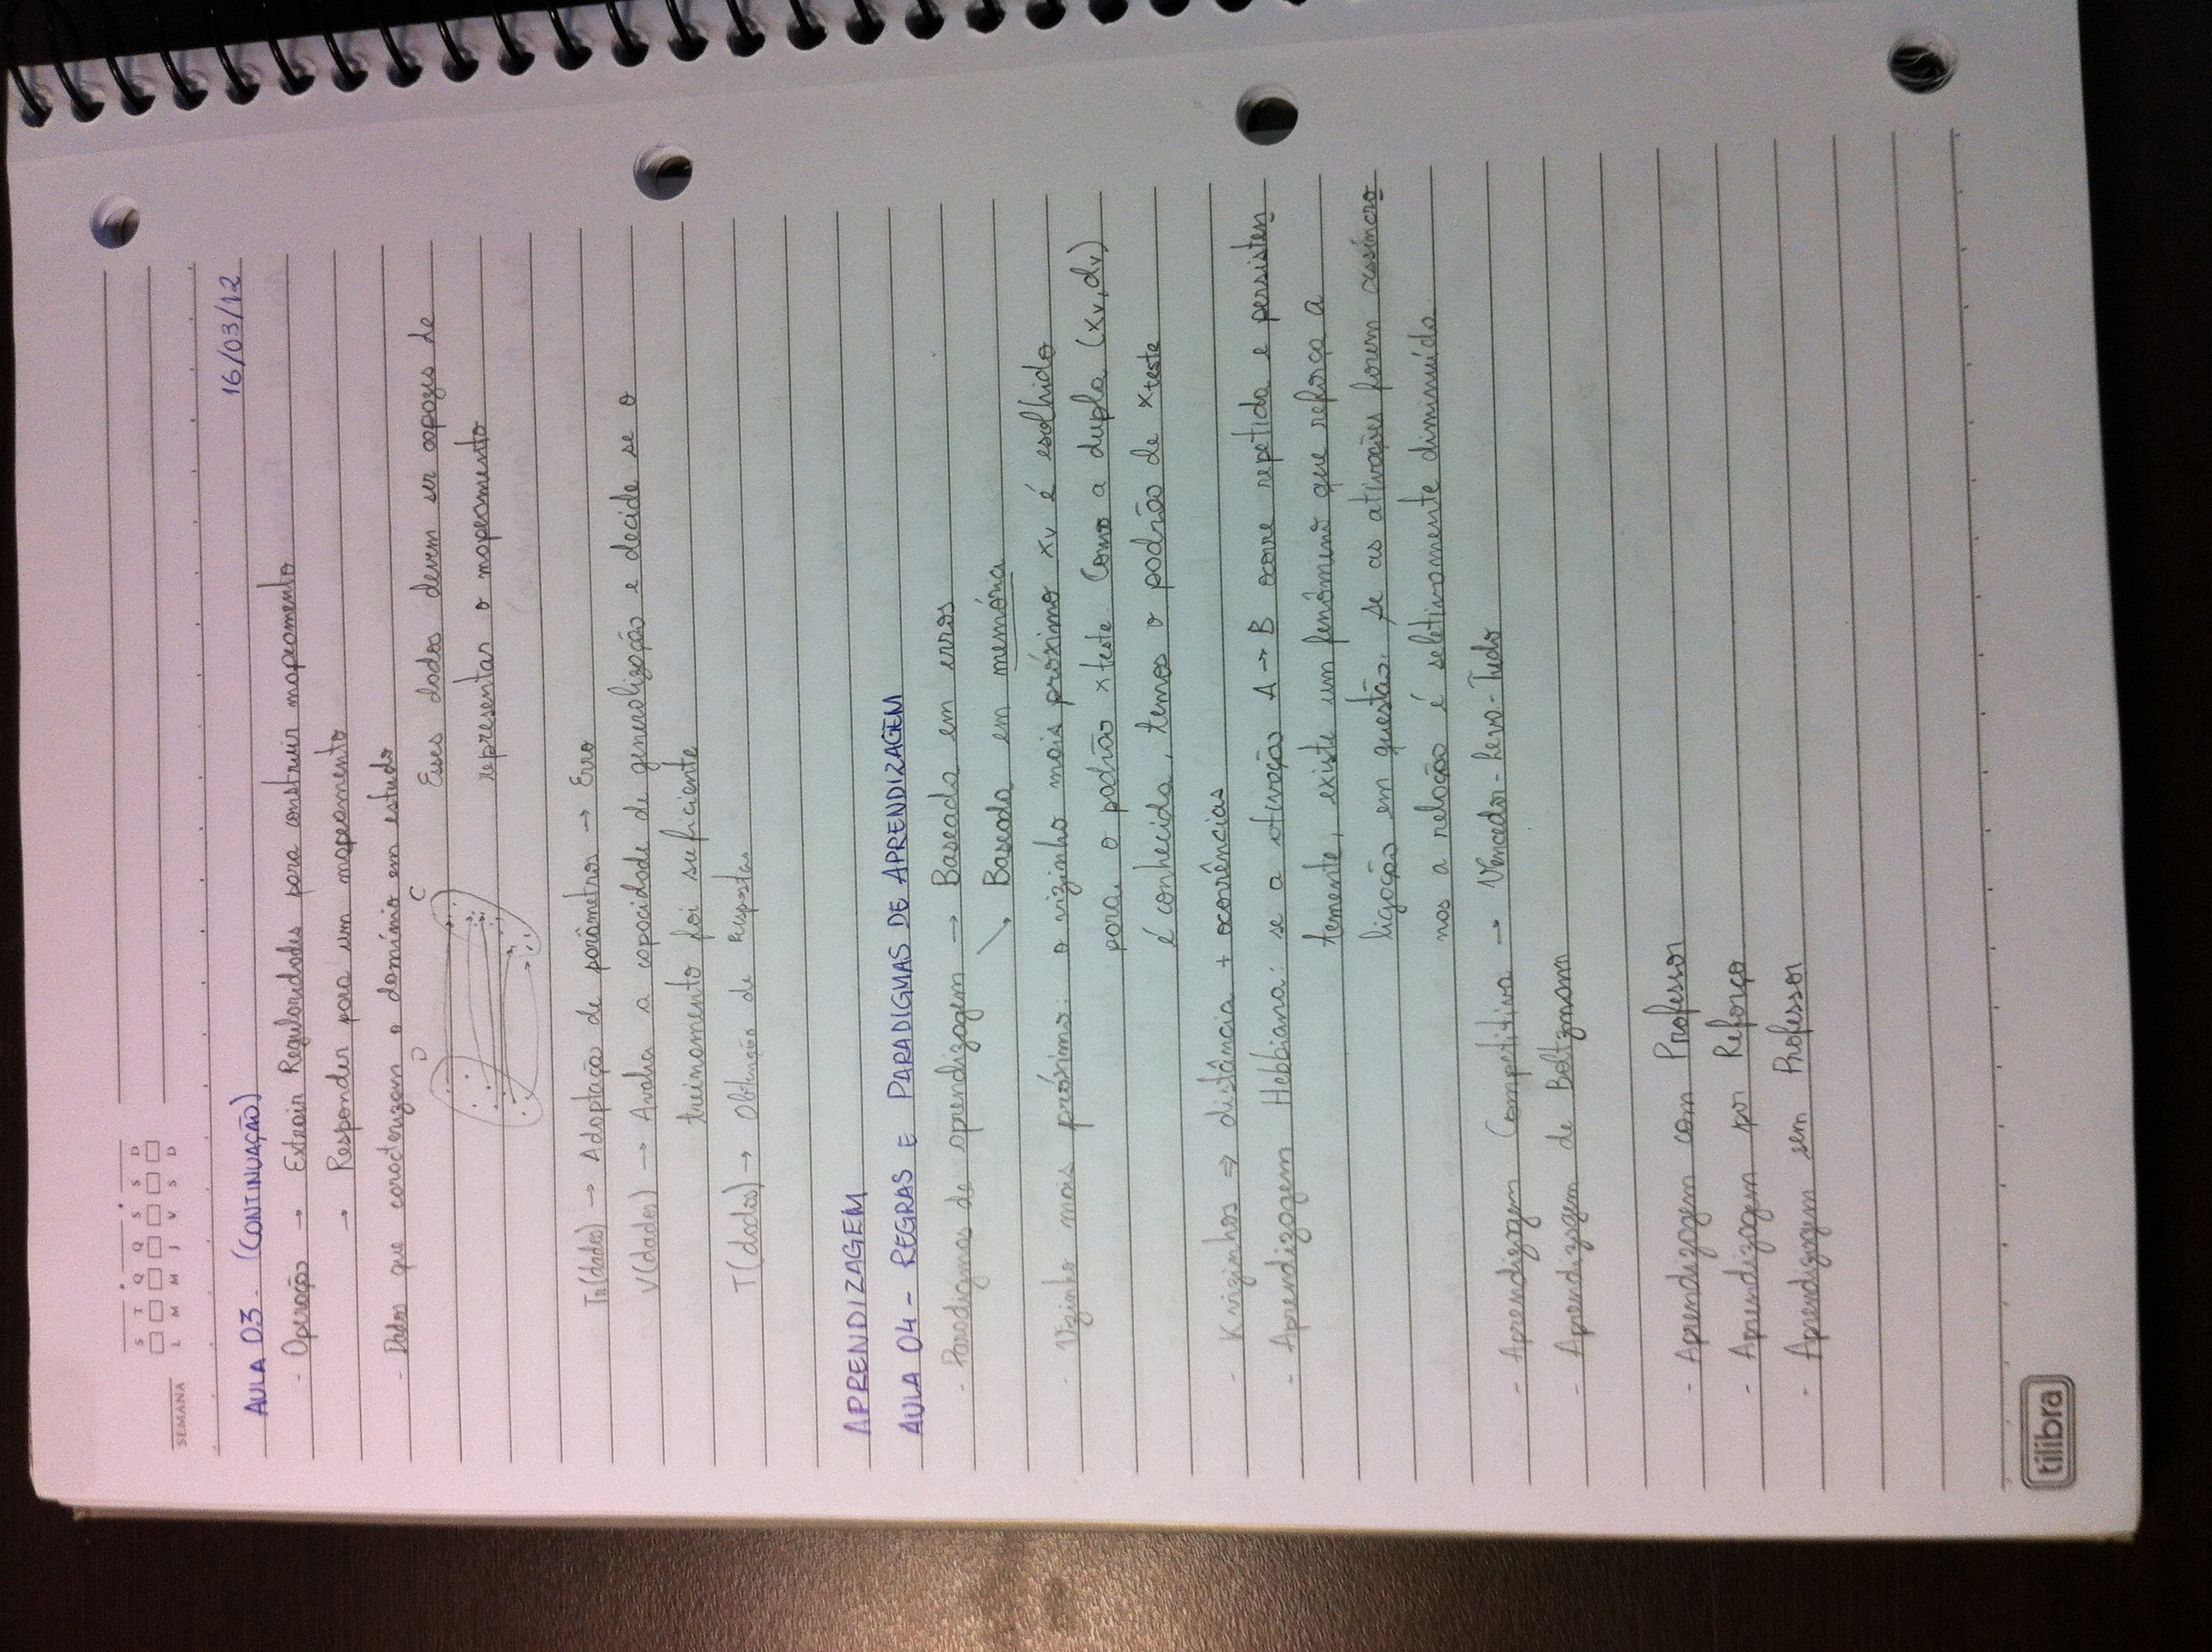 SEMANA
S T Q Q S S D
L M M J V S D
16/03/12
AULA 03 - (CONTINUAÇÃO)
- Operação → Extrair Regularidades para construir mapeamento
→ Responder para um mapeamento
- Dados que caracterizam o domínio em estudo
D C Esses dados devem ser capazes de
representar o mapeamento
Tn(dados) → Adaptação de parâmetros → Erro
V(dados) → Avalia a capacidade de generalização e decide se o
treinamento foi suficiente
T(dados) → Obtenção de respostas
APRENDIZAGEM
AULA 04 - REGRAS E PARADIGMAS DE APRENDIZAGEM
- Paradigmas de aprendizagem → Baseada em erros
↘ Baseada em memória
- Vizinho mais próximo: o vizinho mais próximo xv é escolhido
para o padrão xteste. Como a dupla (xv,dv)
é conhecida, temos o padrão de xteste
- K vizinhos ⇒ distância + ocorrências
- Aprendizagem Hebbiana: se a ativação A → B ocorre repetida e persisten
temente, existe um fenômeno que reforça a
ligação em questão. Se as ativações forem assíncro
nas a relação é seletivamente diminuída.
- Aprendizagem Competitiva → Vencedor-Leva-Tudo
- Aprendizagem de Boltzmann
- Aprendizagem com Professor
- Aprendizagem por Reforço
- Aprendizagem sem Professor
tilibra